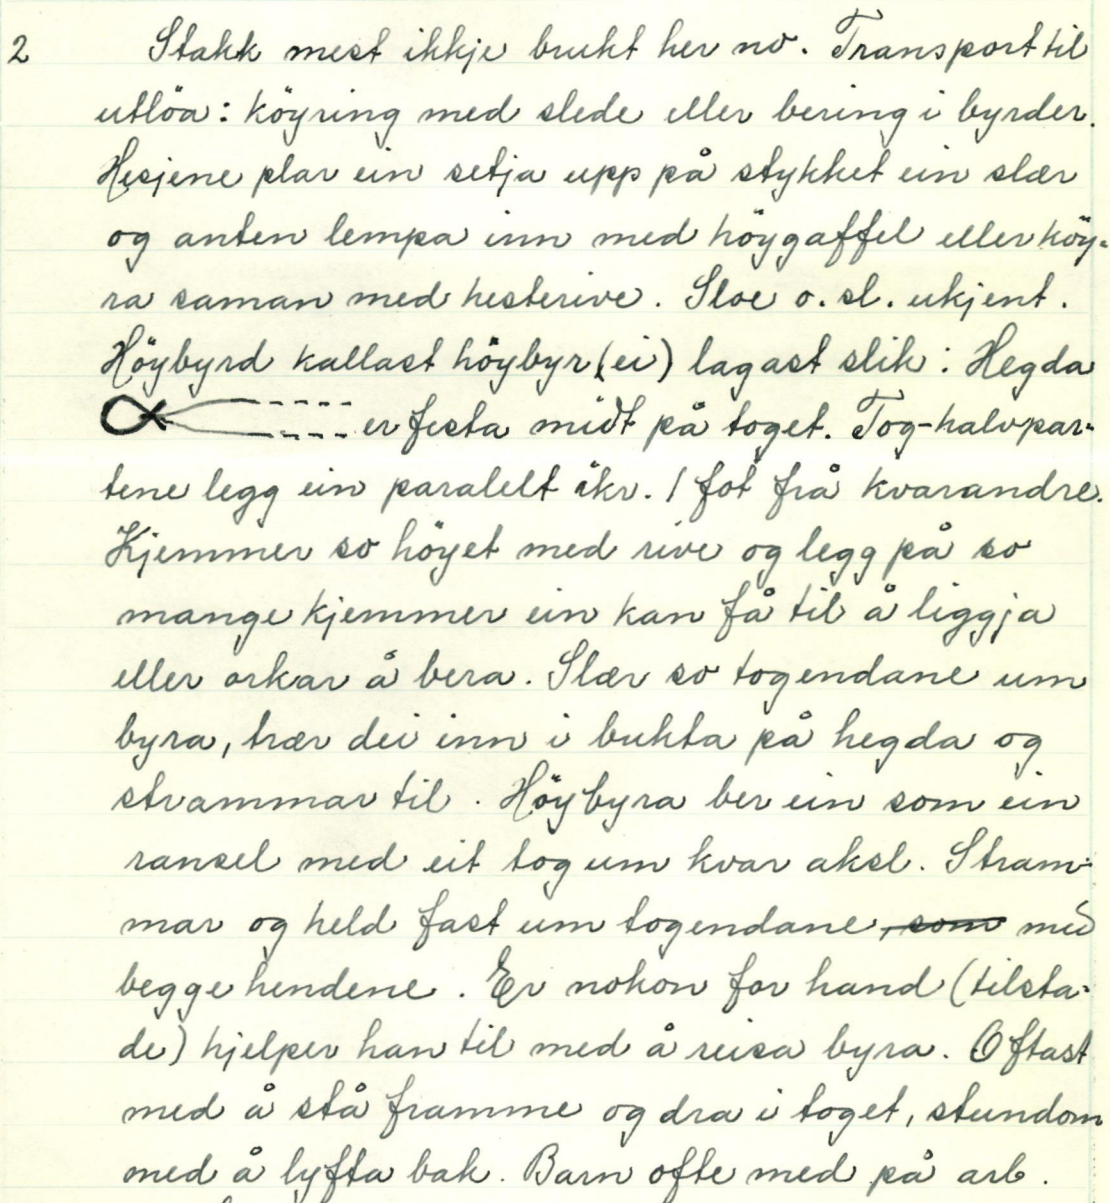 2 Stakk mest ikkje brukt her no. Transport til
utlöa: köyring med slede eller bering i byrder.
Hesjene plar ein setja upp på stykket ein slær
og anten lempa inn med höygaffel eller köy-
ra saman med hesterive. Sloe o. sl. ukjent.
Höybyrd kallast höybyr (ei) lagast slik: Hegda
er festa midt på toget. Tog-halvpar-
tene legg ein paralelt ikr. 1 fot frå kvarandre.
Kjemmer so höyet med rive og legg på so
mange kjemmer ein kan få til å liggja
eller orkar å bera. Slær so togendane um
byra, trær dei inn i bukta på hegda og
strammar til. Höybyra ber ein som ein
ransel med eit tog um kvar aksl. Stram-
mar og held fast um togendane, som med
begge hendene. Er nokon for hand (tilsta-
de) hjelper han til med å reisa byra. Oftast
med å stå framme og dra i toget, stundom
med å lyfta bak. Barn ofte med på arb.